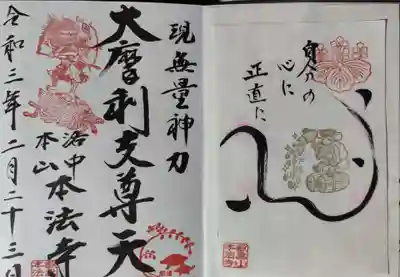 自分の
心に
正直に
心
現無量神力
大摩利支尊天
洛中
本山
本法寺
令和三年二月二十三日